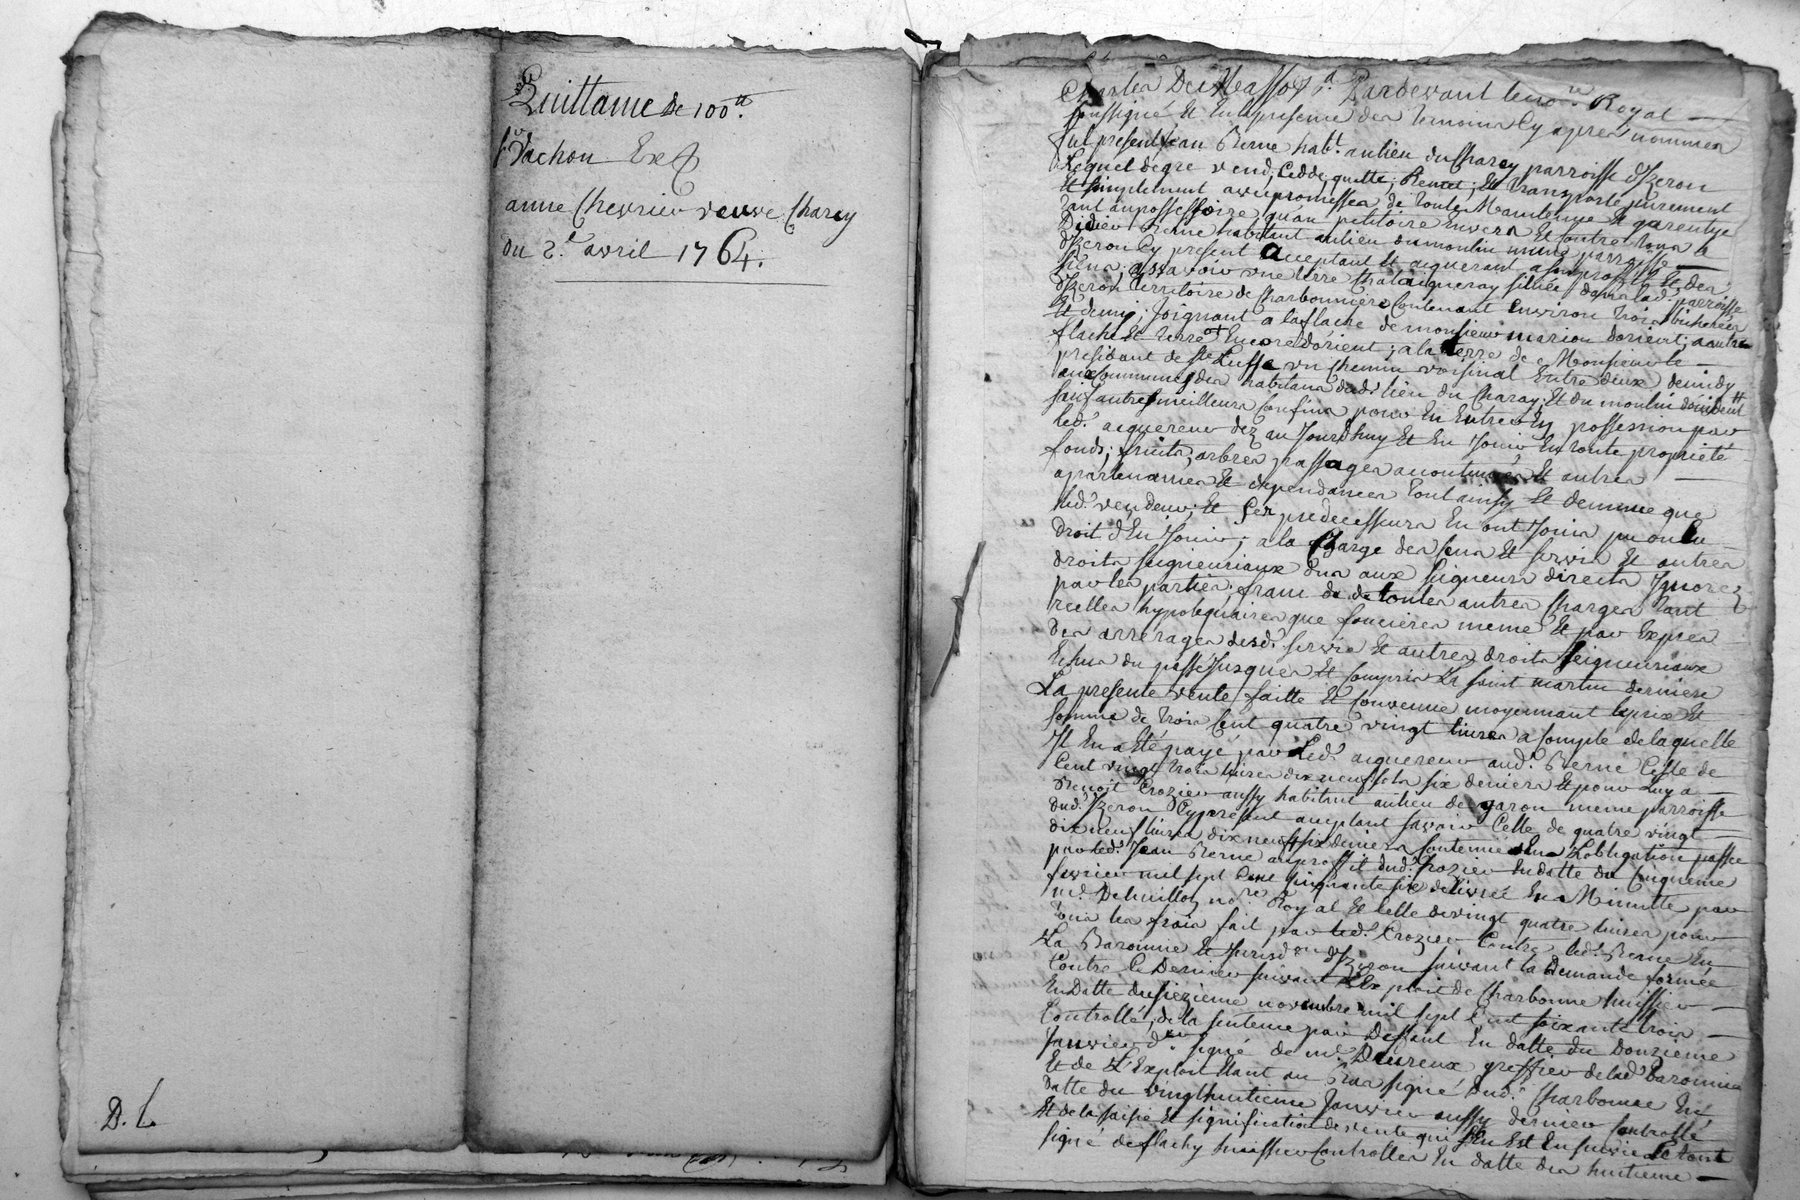 Quittance de 100ᵗᵗ.
Sʳ Vachon
anne Chevrier veuve Charey
du 2.ᵈ avril 1764.
D. L.
Pardevant le noʳᵉ Royal
soussigné Et En la presence des Temoins Cy apres nommés
fut présent Jean Berne habᵗ. au lieu du Charey parroisse d'Izeron
Lequel de gré vend, Cedde, quitte, Remet, Et Transporte purement
Et simplement avec promesses de toute Maintenue Et garentye
tant au possessoire qu'au petitoire Envers Et Contre tous a
Didier Berne habitant au lieu du moulin meme parroisse
d'Izeron Cy present acceptant Et aiquerant a son proffit Et des
siens, assavoir une terre Chataigneray sittuée dans lad. parroisse
d'Izeron territoire de Charbonniere Contenant Environ trois bicherées
Et demy, Joignant a la flache de monsieur marion dorient, a autre
flache Et terre Encore dorient, a la terre de Monsieur le
president de Ste Luffe un Chemin voisinal Entre deux de midy
aux Communes des habitans dud. lieu du Charay Et du moulin
sauf autres meilleurs Confins pour En Entrer En possession par
led. aiquereur dez au Jourdhuy Et En Jouir En toute proprieté
fonds, fruits, arbres, passages acoutumés Et autres
apartenances Et dependances tout ainsy Et de meme que
led. vendeur, Et ses predecesseurs En ont Joui pu ou du
droit d'En Jouir, a la Charge des sens Et servis Et autres
droits seigneuriaux dus aux seigneurs directs Ignorez
par les parties franc de de toutes autres Charges tant
reelles hypotequaires que foncieres meme Et par Exprès
des arrerages desd. servis Et autres droits seigneuriaux
Echus du passé Jusques Et Compris La saint martin derniere
La presente vente faitte Et Convenue moyennant le prix Et
somme de trois Cent quatre vingt livres a Compte de laquelle
Il En a Eté payé par Led. aiquereur aud. Berne Celle de
Cent vingt trois livres dix neuf sols six deniers Et pour Luy a
Benoit Crozier aussy habitant au lieu de garon meme parroisse
dud. Izeron Cy present acceptant savoir Celle de quatre vingt
dix neuf livres dix neuf six deniers Contenue En L'obligation passée
par led. Jean Berne au proffit dud. Crozier En datte du Cinquieme
fevrier mil sept Cent Cinquante six delivré En Minutte par
noʳᵉ Royal Et Celle de vingt quatre livres pour
tous les frais fait par led. Crozier Contre led. Berne En
La Baronnie Et Jurisdᵒⁿ d'Izeron suivant la Demande formée
Contre Ce Dernier suivant L'Exploit de Charbonne huissier
En Datte du seizieme novembre mil sept Cent soixante trois
Controllé, de la sentence par Deffaut En datte du Douzieme
Janvier dᵉʳ signé de mᵉ Devreux greffier de lad. Baronnie
Et de L'Exploit Etant au Bas signé dud. Charbonne En
datte du vingthuitieme Janvier aussy dernier Controllé
Et de la saisie Et signification de vente qui s'En Est Ensuivie le tout
signé de flachy huissier Controllés En datte des huitieme